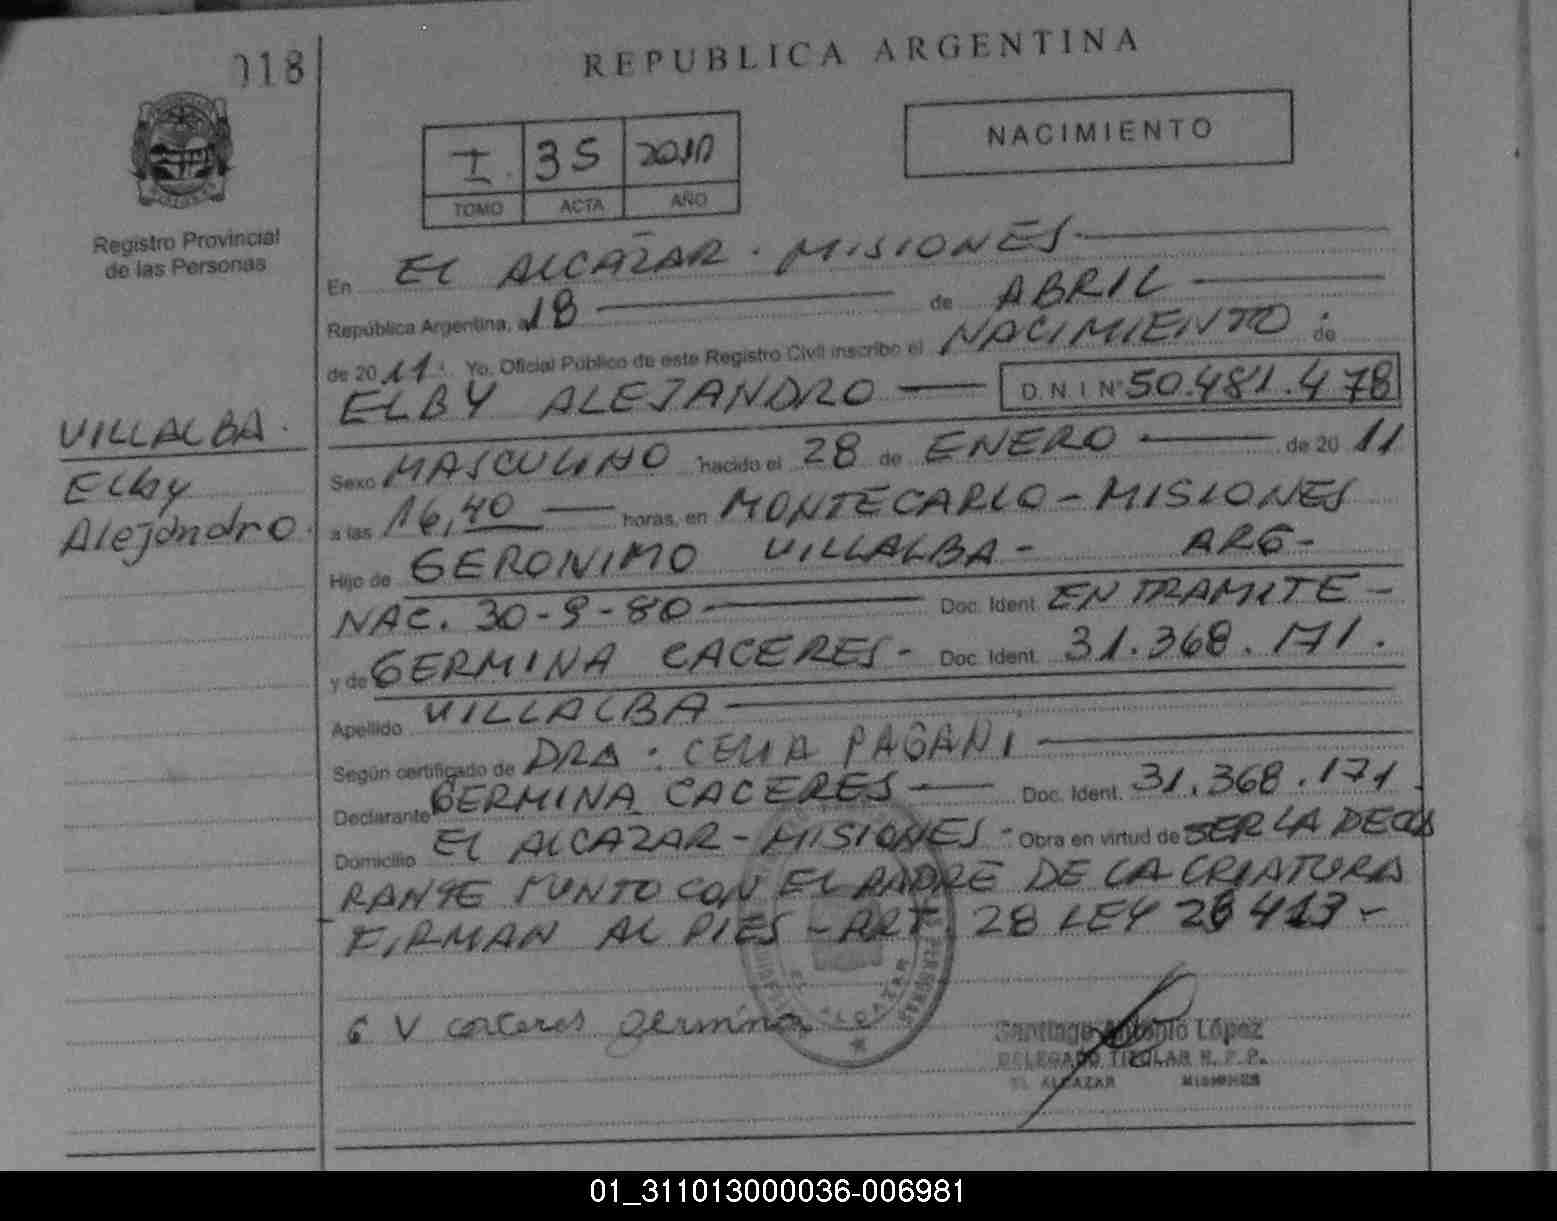 018
REPUBLICA ARGENTINA
NACIMIENTO
I. 35
TOMO ACTA AÑO
Registro Provincial
de las Personas
VILLALBA.
Elby
Alejandro.
En EL ALCAZAR - MISIONES
República Argentina, a 18 de ABRIL
de 2011. Yo, Oficial Público de este Registro Civil inscribo el NACIMIENTO de
ELBY ALEJANDRO D.N.I Nº 50.481.478
Sexo MASCULINO nacido el 28 de ENERO de 2011
a las 16,40 horas, en MONTECARLO - MISIONES
Hijo de GERONIMO VILLALBA - ARG -
NAC. 30-9-80 Doc. Ident. EN TRAMITE -
y de GERMINA CACERES - Doc. Ident. 31.368.171.
Apellido VILLALBA
Según certificado de DRA. CELIA PAGANI
Declarante GERMINA CACERES Doc. Ident. 31.368.171
Domicilio EL ALCAZAR - MISIONES - Obra en virtud de SER LA DECLA
RANTE JUNTO CON EL PADRE DE LA CRIATURA
FIRMAN AL PIES - ART. 28 LEY 26413 -
G V caceres germina
EL ALCAZAR
Santiago Antonio López
DELEGADO TITULAR R.P.P.
EL ALCAZAR MISIONES
01_311013000036-006981